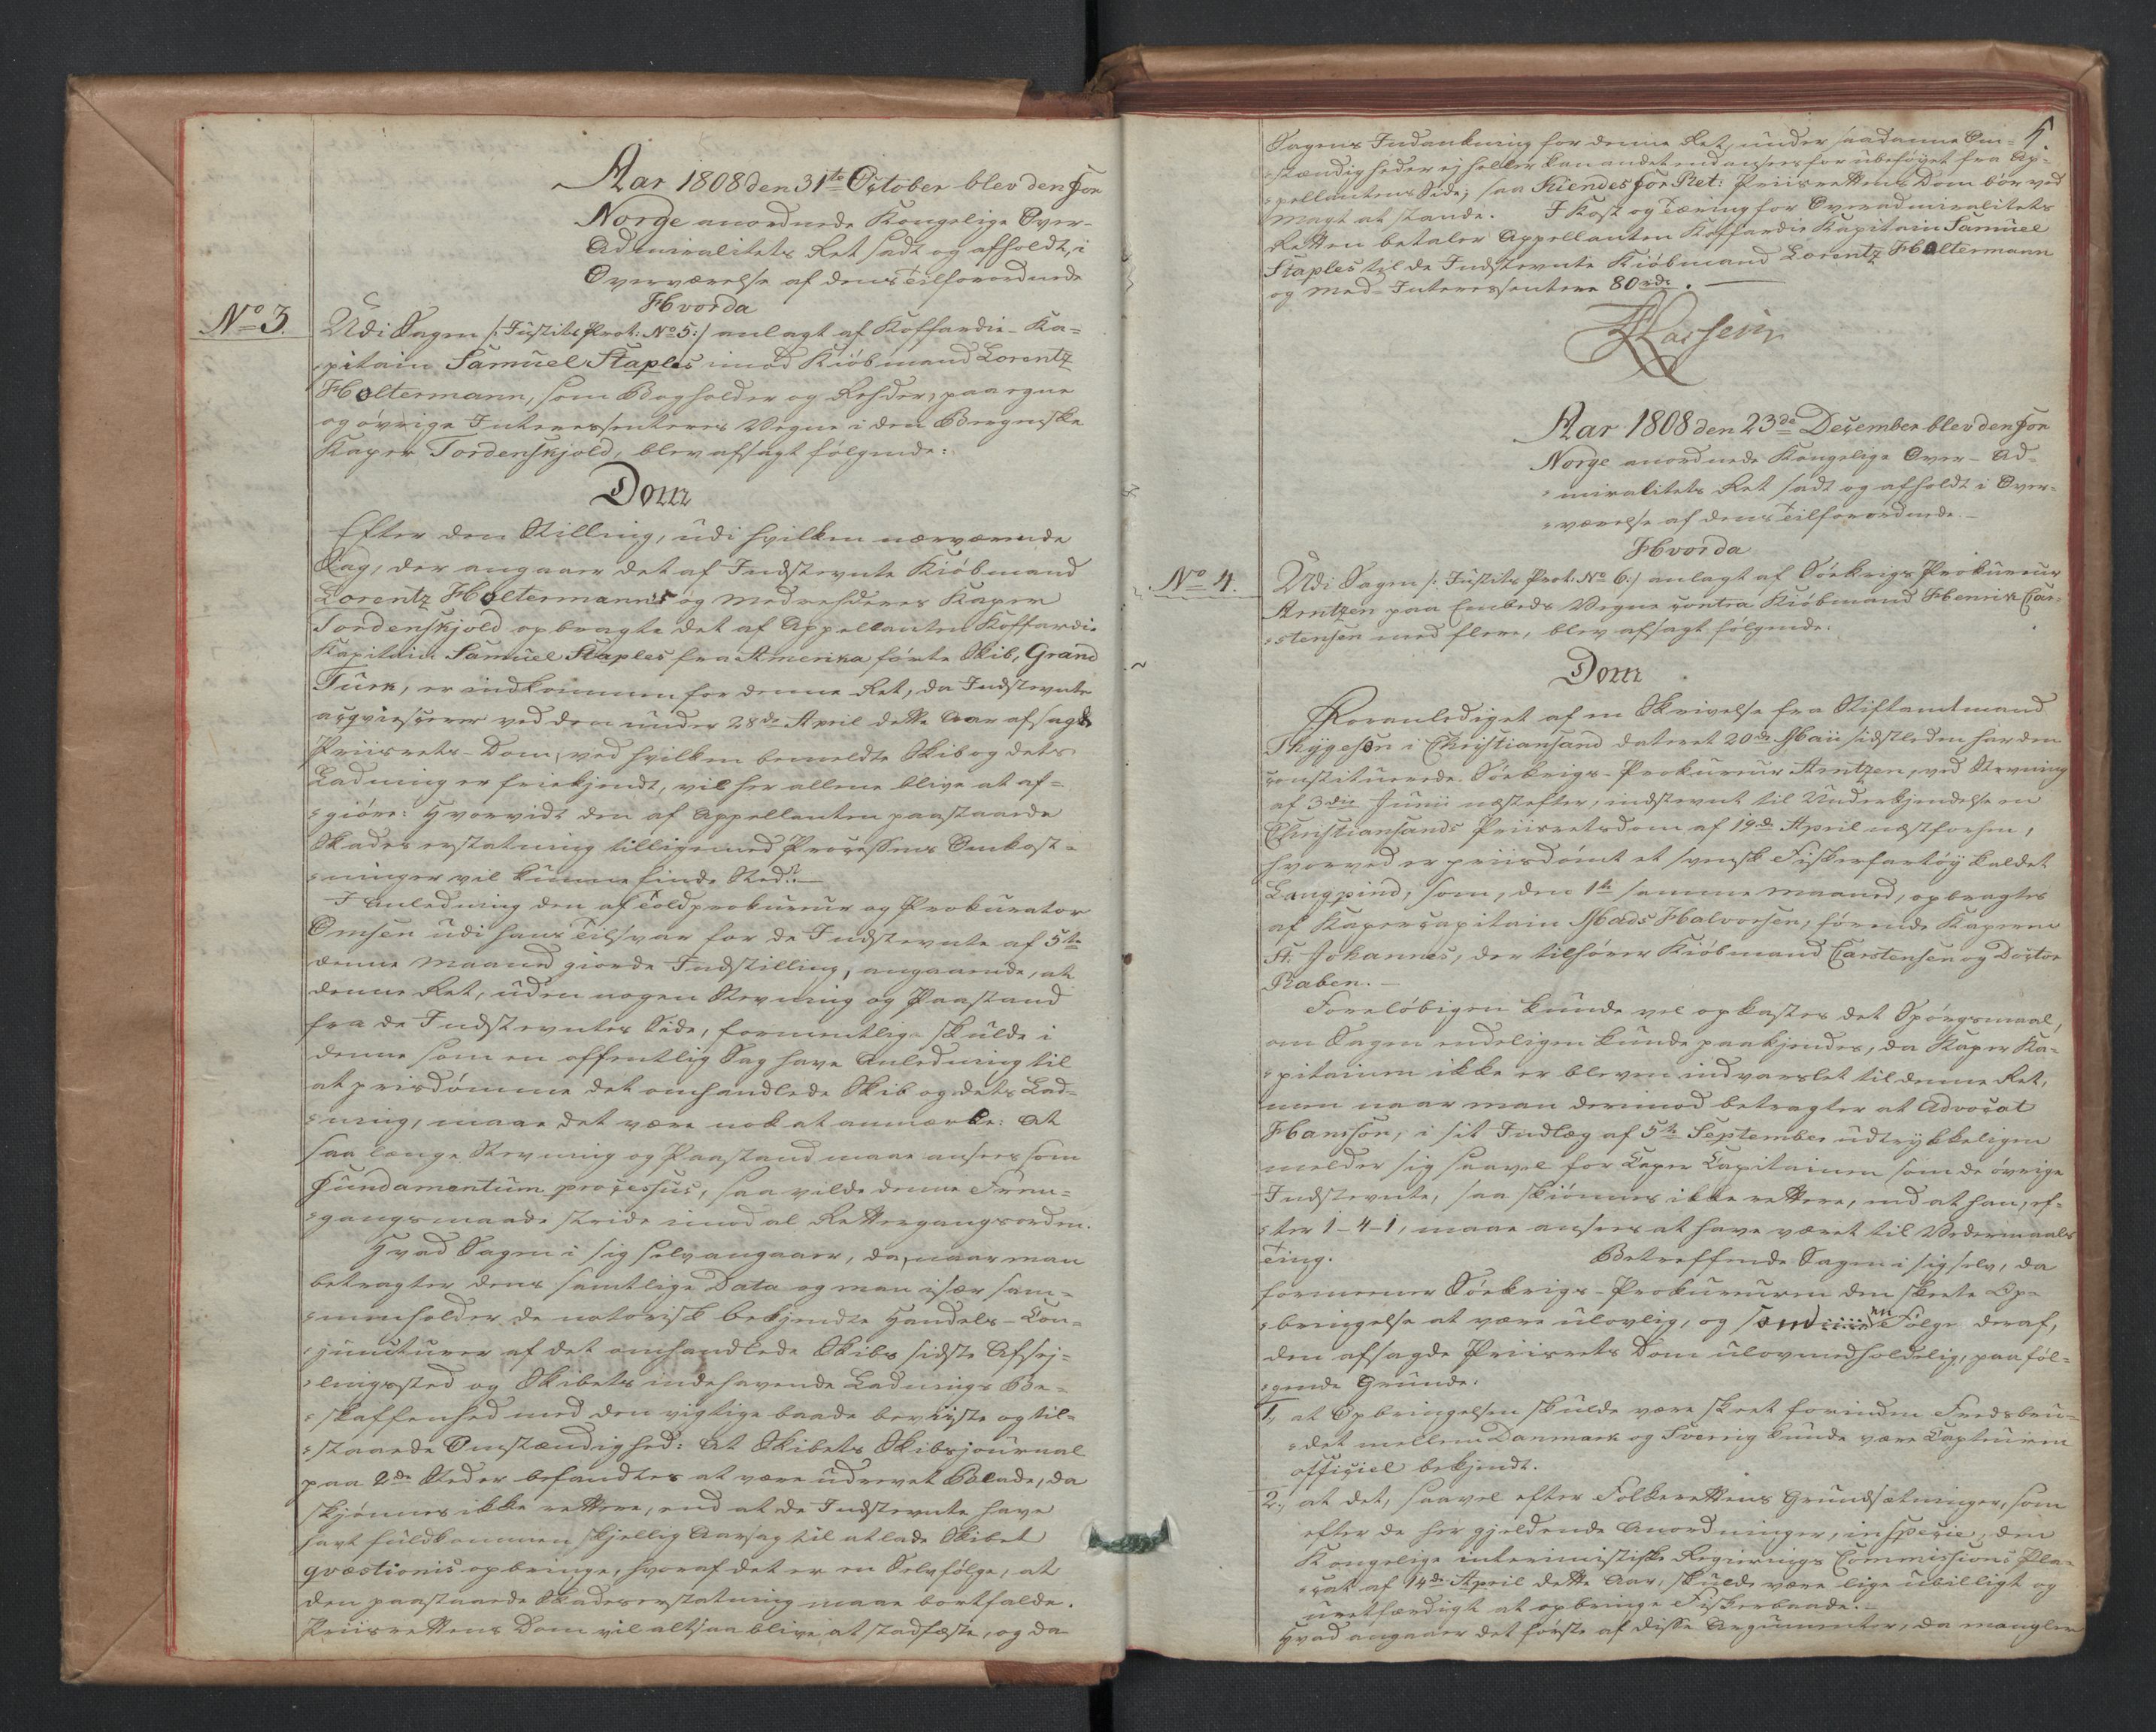 Aar 1808 den 31te October blev den for
Norge anordnede Kongelige Over-
Admiralitets Ret sadt og afholdt, i
Overværelse af dens Tilforordnede
Hvorda
No 3.
Udi Sagen /: Justits Prot: No 5:/ anlagt af Koffardie-Ka=
=pitain Samuel Staples imod Kiöbmand Lorentz
Holtermann, som Bogholder og Rehder, paa egne
og övrige Interessenteres Vegne i den Bergenske
Kaper Tordenskjold, blev afsagt fölgende:
Dom
Efter den Stilling, udi hvilken nærværende
Sag, der angaaer det af Indstevnte Kiöbmand
Lorentz Holtermanns og Medrehderes Kaper
Tordenskjold opbragte det af Appellanten Koffardie
Kapitain Samuel Staples fra Amerika förte Skib, Grand
Turk, er indkommen for denne Ret, da Indstevnte
acqviescerer ved den under 28de April dette Aar afsagde
Priisrets-Dom, ved hvilken bemeldte Skib og dets
Ladning er friekjendt, vil her allene blive at af=
=giöre: Hvorvidt den af Appellanten paastaaede
Skades erstatning tilligemed Processens Omkost=
=ninger vil kunne finde Sted?
I Anledning den af Toldprokureur og Prokurator
Omsen udi hans Tilsvar for de Indstevnte af 5te
denne Maaned giorde Indstilling, angaaende, at
denne Ret, uden nogen Stevning og Paastand
fra de Indstevntes Side, formentlig skulde i
denne som en offentlig Sag have Anledning til
at prisdömme det omhandlede Skib og dets Lad=
=ning, maae det være nok at anmærke: At
saa længe Stevning og Paastand maae ansees som
fundamentum processus, saa vilde denne Frem=
=gangsmaade stride imod al Rettergangsorden.
Hvad Sagen i sig selv angaaer, da, naar man
betragter dens samtlige Data og man især sam=
=menholder de notorisk bekjendte Handels-Con=
=juncturer af det omhandlede Skibs sidste Afsej=
=lingssted og Skibets indehavende Ladnings Be=
=skaffenhed med den vigtige baade beviiste og til=
=staaede Omstændighed: At Skibets Skibsjournal
paa 2de Steder befandtes at være udrevet Blade, da
skjönnes ikke rettere, end at de Indstevnte have
havt fuldkommen skjellig Aarsag til at lade Skibet
qvæstionis opbringe, hvoraf det er en Selvfölge, at
den paastaaede Skadeserstatning maae bortfalde.
Priisrettens Dom vil altsaa blive at stadfæste, og da
5.
Sagens Indankning for denne Ret, under saadanne Om=
=stændigheder ej heller kan andet end ansees for ubeföyet fra Ap=
=pellantens Side; saa Kiendes for Ret: Priisrettens Dom bör ved
Magt at stande. I Kost og Tæring for Overadmiralitets
Retten betaler Appellanten Koffardie Kapitain Samuel
Staples til de Indstevnte Kiöbmand Lorentz Holtermann
og Med-Interessentere 80rdr.
Aar 1808 den 23de December blev den for
Norge anordnede Kongelige Over-Ad=
=miralitets Ret sadt og afholdt i Over=
=værelse af dens Tilforordnede.
Hvorda
No 4.
Udi Sagen /: Justits Prot: No 6:/ anlagt af Söekrigs Prokureur
Arntzen paa Embeds Vegne contra Kiöbmand Henrik Car=
=stensen med flere, blev afsagt fölgende:
Dom
Foranlediget af en Skrivelse fra Stiftamtmand
Thygeson i Christiansand dateret 20de Maii sidstleden har den
constituerede Söekrigs-Prokureur Arntzen, ved Stevning
af 3die Junii næstefter, indstevnt til Underkjendelse en
Christiansands Priisretsdom af 19de April næstforhen,
hvorved er priisdömt et svensk Fiskerfartöy kaldet
Langpind, som, den 1te samme Maaned, opbragtes
af Kapercapitain Mads Halvorsen, förende Kaperen
St. Johannes, der tilhörer Kiöbmand Carstensen og Doctor
Raben.
Forelöbigen kunde vel opkastes det Spörgsmaal,
om Sagen endeligen kunde paakjendes, da Kaper Ka=
=pitainen ikke er bleven indvarslet til denne Ret,
men naar man derimod betragter at Advocat
Hansson, i sit Indlæg af 5te September udtrykkeligen
melder sig saavel for Caper Capitainen som de övrige
Indstevnte, saa skiönnes ikke rettere, end at han, ef=
=ter 1-4-1, maae ansees at have været til Vedermaals
Ting. Betreffende Sagen i sig selv, da
formener Söekrigs-Prokureuren den skeete Op=
=bringelse at være ulovlig, og som en Fölge deraf,
den afsagde Priisrets Dom ulovmedholdelig, paa föl=
=gende Grunde:
1., at Opbringelsen skulde være skeet forinden Fredsbru=
=det mellem Danmark og Sverrig kunde være Capteuren
officiel bekjendt.
2., at det, saavel efter Folkerettens Grundsætninger, som
efter de her gjeldende Anordninger, in specie, den
Kongelige interimistiske Regierings Commissions Pla=
=cat af 14de April dette Aar, skulde være lige ubilligt og
uretfærdigt at opbringe Fiskerbaade.
Hvad angaaer det förste af disse Argumenter, da mangler